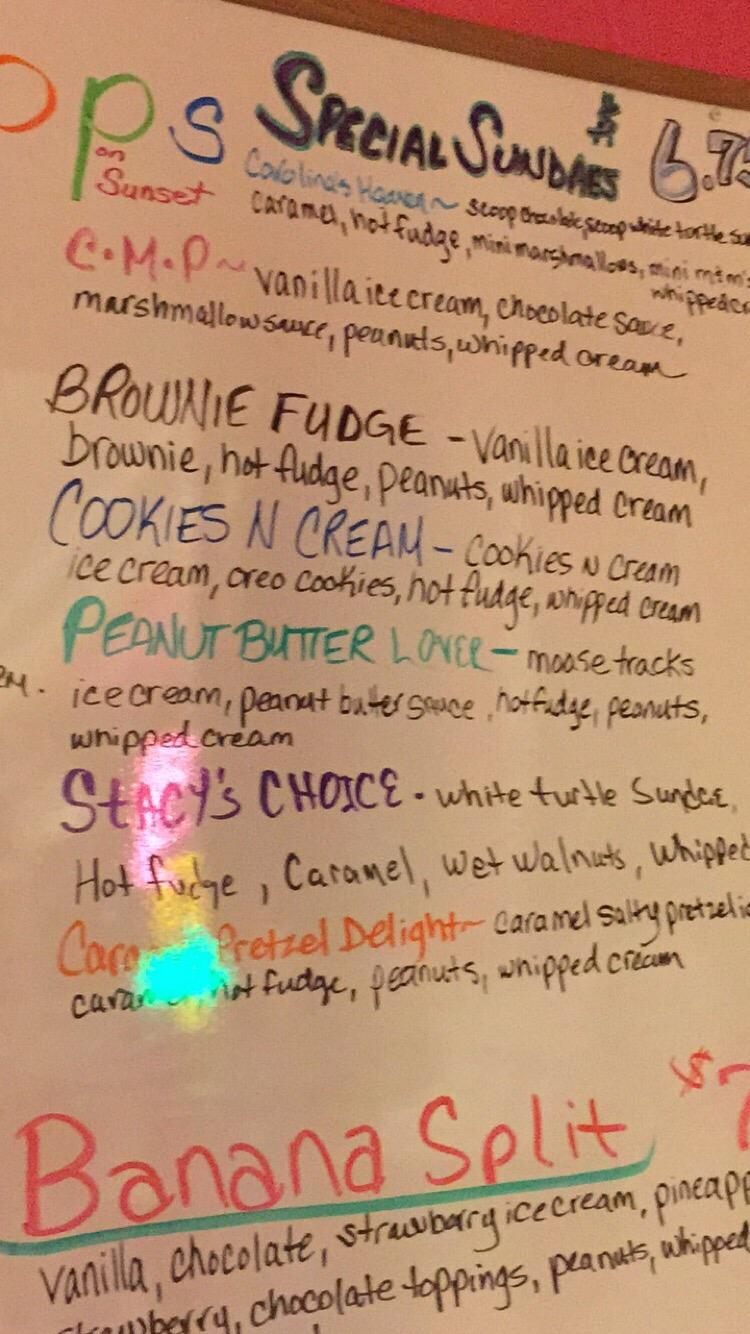 ops
on
Sunset
SPECIAL SUNDAES $ 6.75
Carolina's Heaven ~ scoop chocolate, scoop white turtle su
caramel, hot fudge, mini marshmallows, mini m+m's
whipped cr
C.M.P ~ vanilla ice cream, chocolate sauce,
marshmallow sauce, peanuts, whipped cream
BROWNIE FUDGE - Vanilla ice cream,
brownie, hot fudge, peanuts, whipped cream
COOKIES N CREAM - Cookies N Cream
ice cream, oreo cookies, hot fudge, whipped cream
PEANUT BUTTER LOVER - moose tracks
ice cream, peanut butter sauce, hot fudge, peanuts,
whipped cream
STACY'S CHOICE - white turtle Sundae,
Hot fudge, Caramel, wet walnuts, Whipped
Pretzel Delight ~ caramel salty pretzel ic
hot fudge, peanuts, whipped cream
Banana Split $7
vanilla, chocolate, strawberry ice cream, pineapp
strawberry, chocolate toppings, peanuts, whipped